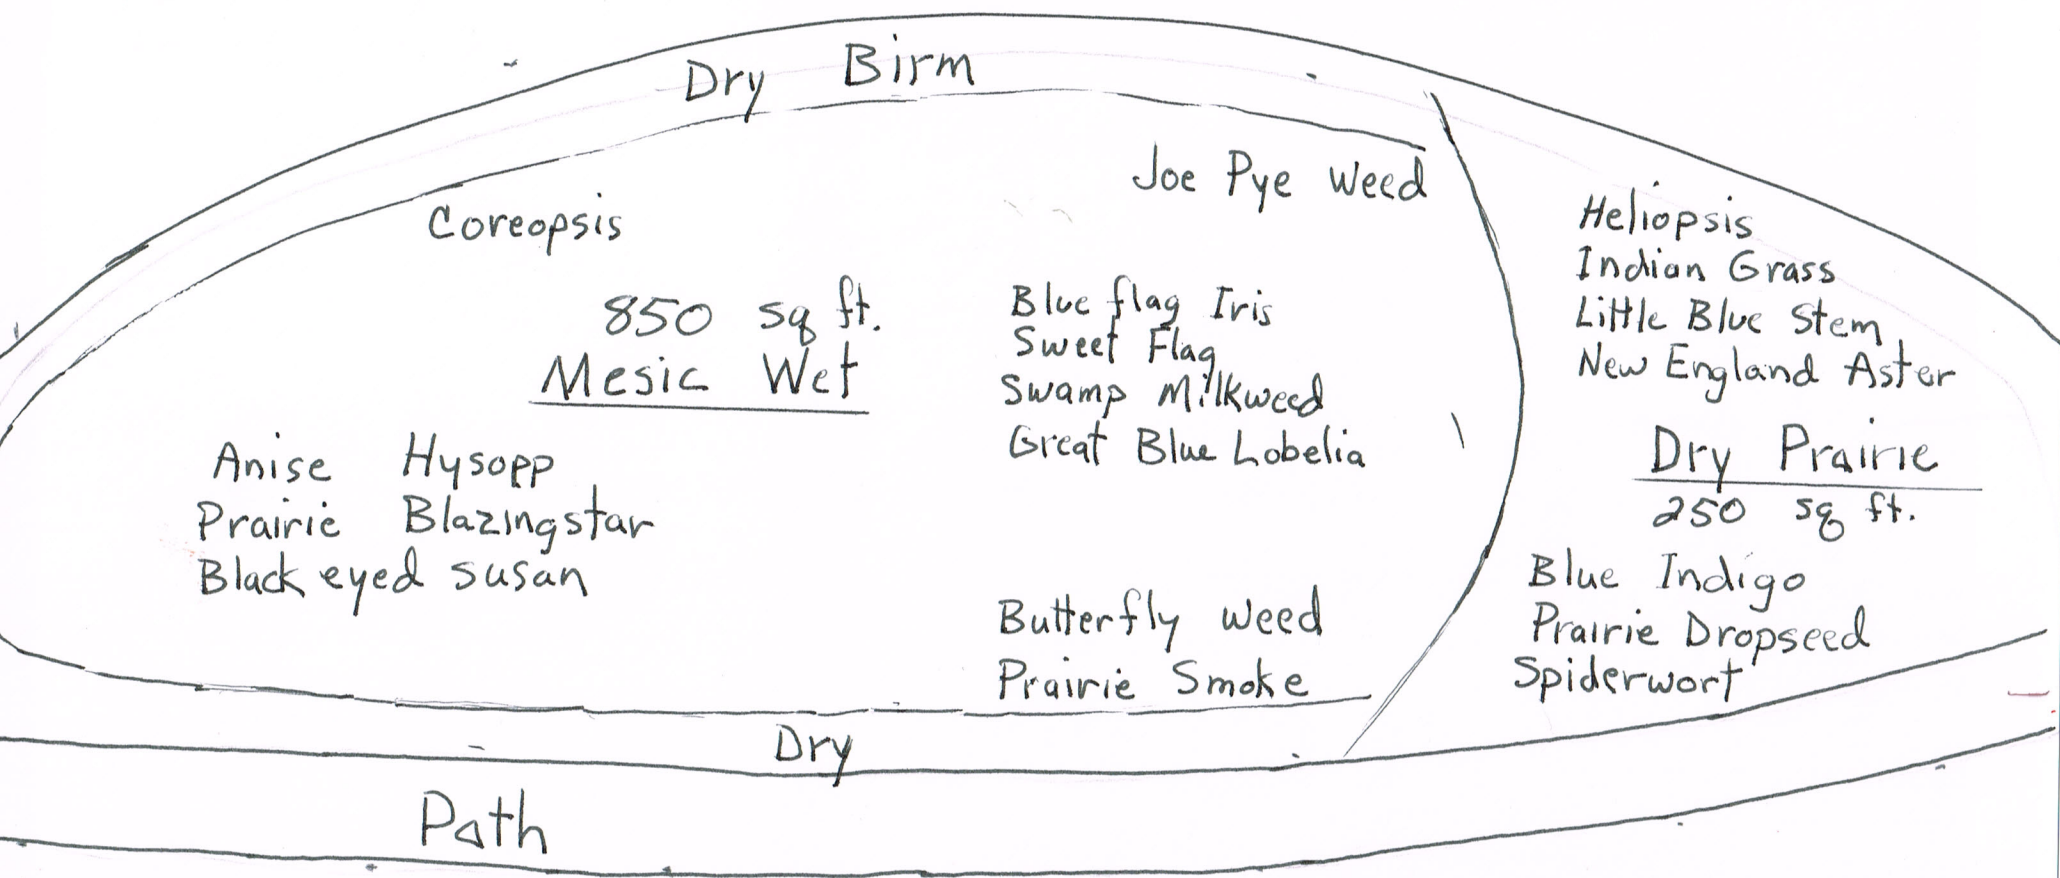 Dry Birm
Joe Pye Weed
Coreopsis
850 sq ft.
Mesic Wet
Blue flag Iris
Sweet Flag
Swamp Milkweed
Great Blue Lobelia
Anise Hysopp
Prairie Blazingstar
Black eyed susan
Butterfly weed
Prairie Smoke
Heliopsis
Indian Grass
Little Blue Stem
New England Aster
Dry Prairie
250 sq ft.
Blue Indigo
Prairie Dropseed
Spiderwort
Dry
Path